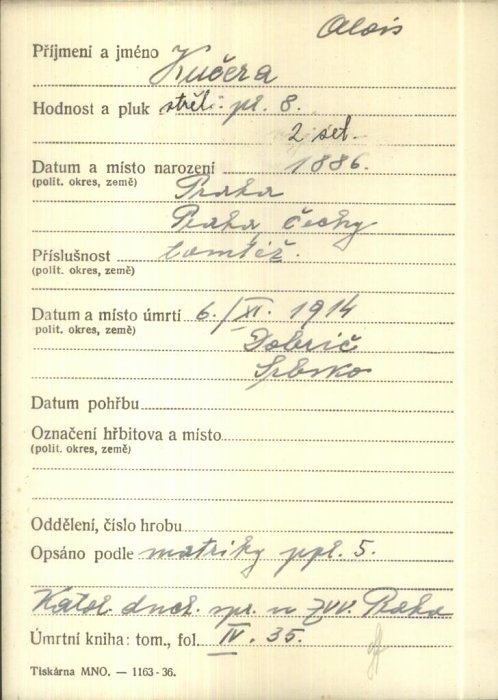 Alois
Příjmení a jméno Kučera
Hodnost a pluk střel. pl. 8.
2 set.
Datum a místo narození 1886.
(polit. okres, země) Praha
Praha, Čechy
Příslušnost tamtéž.
(polit. okres, země)
Datum a místo úmrtí 6./XI. 1914
polit. okres, země) Dobrič
Srbsko
Datum pohřbu
Označení hřbitova a místo
(polit. okres, země)
Oddělení, číslo hrobu
Opsáno podle matriky ppl. 5.
Katol. duch. spr. u ZVV. Praha
Úmrtní kniha: tom., fol. IV. 35.
Tiskárna MNO. — 1163-36.